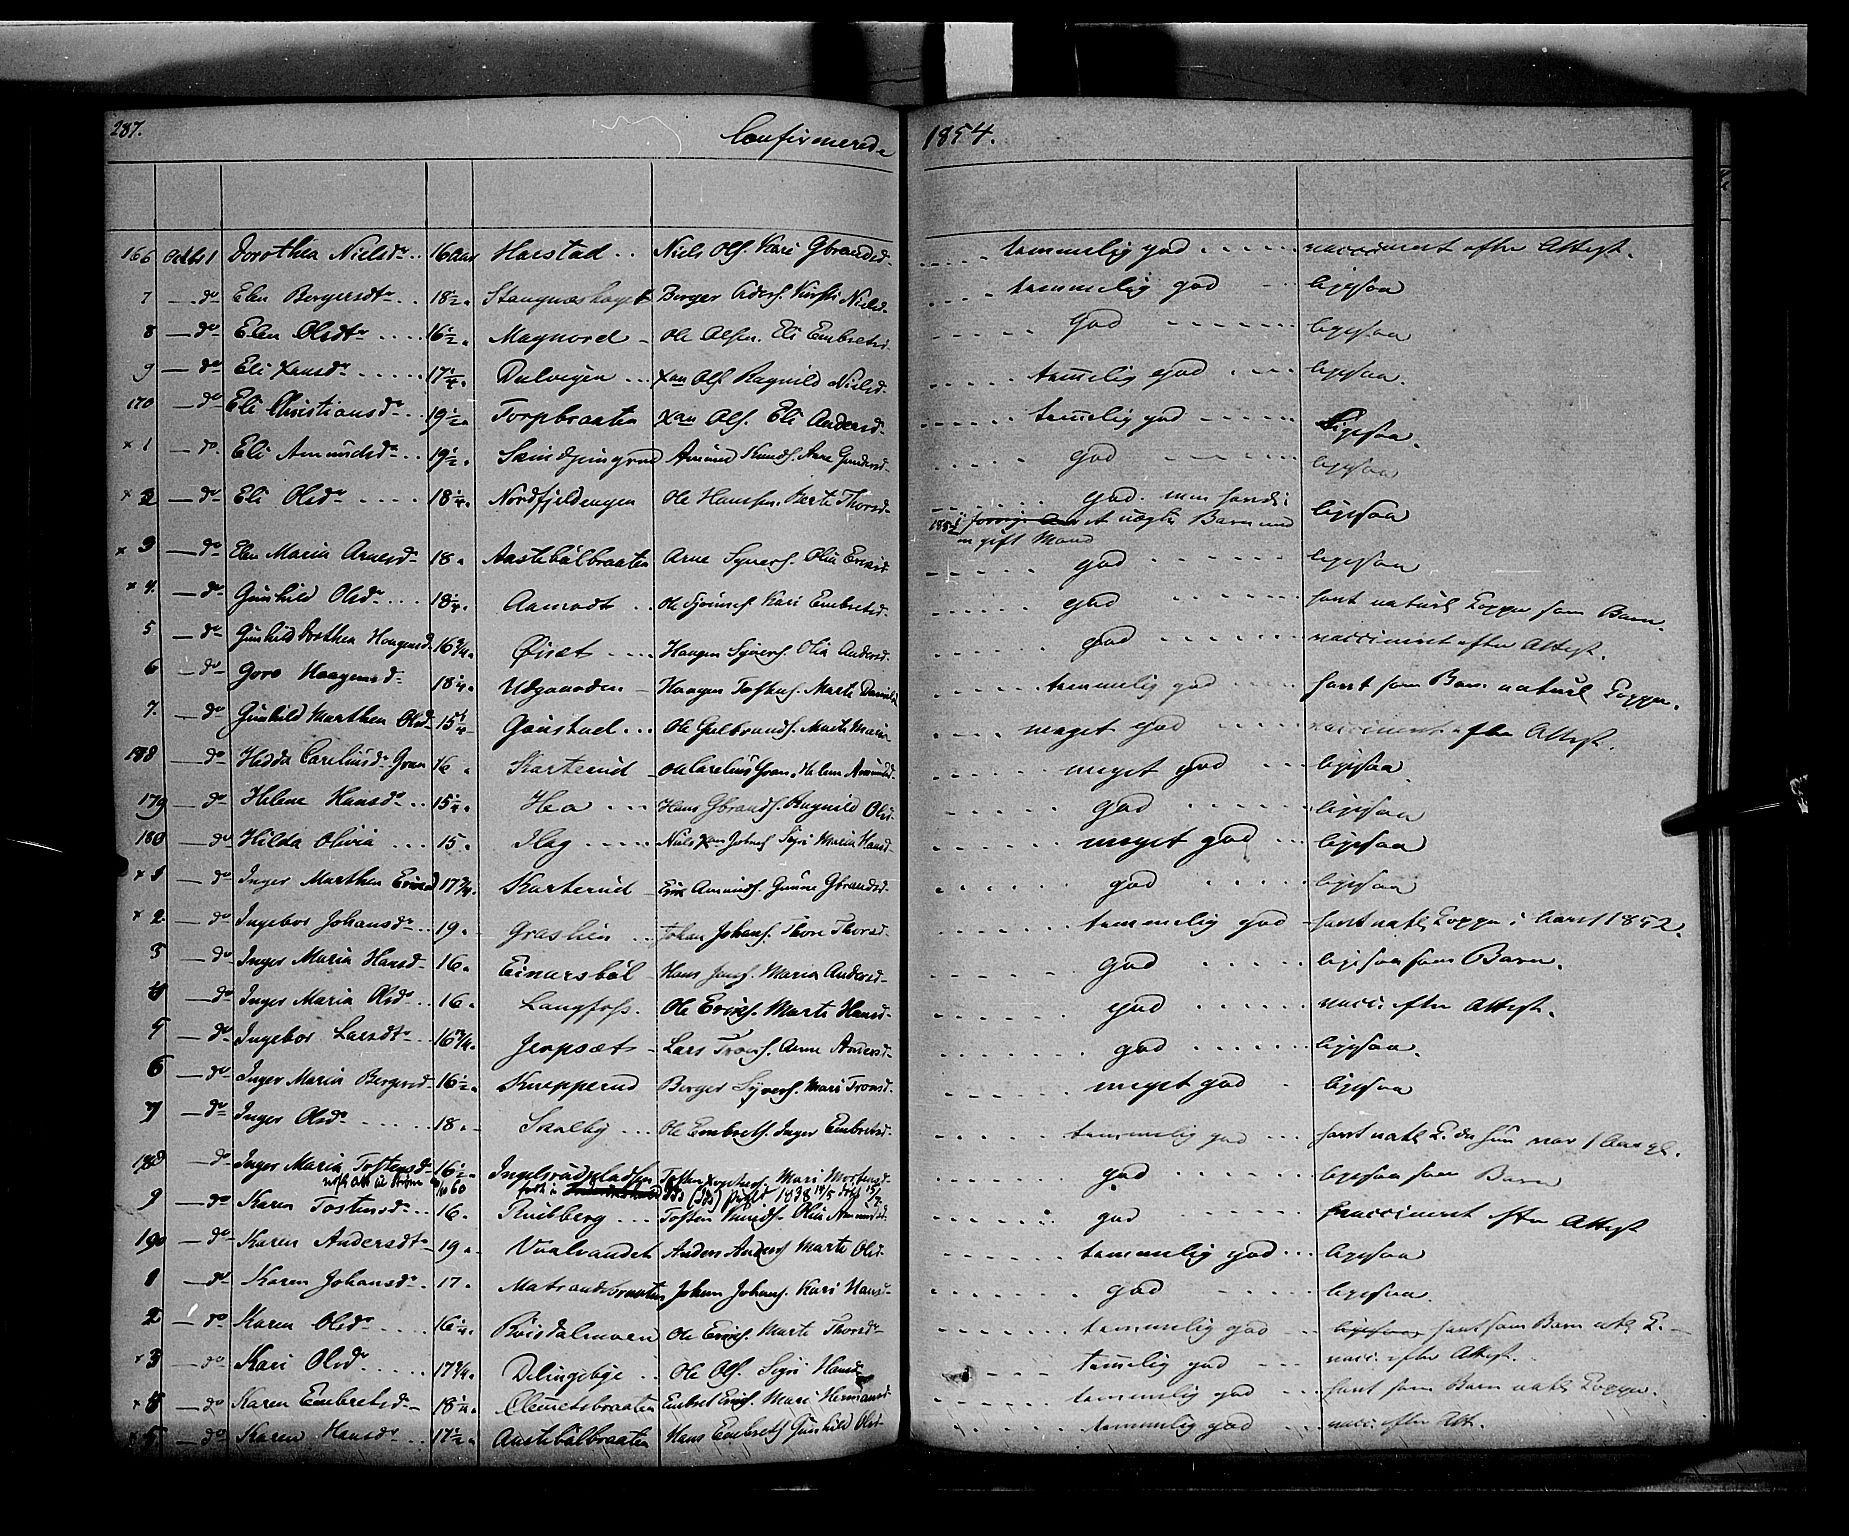 287. Confirmerede 1854.
166 Octbr 1 Dorothea Nielsdr 16 Aar Harstad Niels Ols. Kari Gbrandsd. temmelig god vaccineret efter Attest.
7 — do Elen Bergersdtr 18 1/2 Berger Niels temmelig god ligesaa
8 — do Elen Olsdtr 16 1/2 Magnord Ole Olsen. Eli Embretsd. god ligesaa
9 — do Eli Xansdr 17 1/4 Dulvigen Xan Ols. Ragnild Nielsd. temelig god ligesaa.
170 — do Eli Christiansdr 19 1/2 Torpbraaten Xan Ols. Eli Andersd. temelig god Ligesaa.
x 1 — do. Eli Amundsdr 19 1/2 Amund Knuds. Anne Gundersd. god ligesaa
x 2 — do Eli Olsdr 18 1/4 Nordfjeldengen Ole Hansen. Berte Thorsd. god. men ligesaa
et uægte Barn med
en gift Mand
x 3 — do Elen Maria Arnesd. 18. Aastebølbraaten Arne Syvers. Olia Ericsd. god ligesaa
x 4. — do Gunhild Olsdr 18 1/4 Aamodt Ole Kari Embretsd. god havt naturl Kopper som Barn.
5 — do Gunhild Dorthea Haagensd 16 3/4. Øiset Haagen Syvers. Olia Andersd. god vaccineret efter Attest.
6 — do Goro Haagensd. 18 1/4. Udgaarden Haagen Tostens. Marte temmelig god havt som Barn naturl Kopper.
7. — do Gunhild Marthea Olsd. 15 1/4 Gaustad Ole Gulbrands. Marte Maria meget god vaccineret efter Attest.
178 — do Hedda Careliusdr Gran 16. Skarterud Ole Carelius Gran. Helene Amundsd. meget god ligesaa
179 — do Helene Hansdr 15 1/4. Hea Hans Gbrands. Ragnild Olsd. god ligesaa
180 — do Hilda Olivia 15. Flag Niels Xan Johns. Sigri Maria Hansd. meget god ligesaa
x 1 — do Inger Marthea Ericsd 17 3/4. Skarterud Eric Amunds. Gunne Gbrandsd. god ligesaa
x 2 — do Ingebor Johansdr 19. Graslien Johan Johans. Thore Thorsd. temmelig god havt natl Kopper i Aaret 1852.
3 — do Inger Maria Hansd. 16. Einarsbøl Hans Jens. Maria Andersd. god ligesaa som Barn.
4 — do Inger Maria Olsdr 16. Langfoss. Ole Erics. Marte Hansd. god vacc. efter Attest.
5 — do Ingebor Larsdtr 16 3/4. Jerpset Lars Trons. Anne Andersd. god ligesaa.
6 — do Inger Maria Bergersd. 16 1/2. Knapperud Berger Syvers. Mari Tronsd. meget god ligesaa
7 — do Inger Olsdr 18. Skulby Ole Embrets. Inger Embretsd. temmelig god havt natl K. da hun var 1 Aar gl.
188 — do Inger Maria Tostensdr 16 1/2. Ingelsrudpladsen Tosten Mari Mortensd. god ligesaa som Barn
født i 1838
9 — do Karen Tostensdr 16. Ruthberg Tosten Knuds. Olia Amundsd. god vaccineret efter Attest
190 — do Karen Andersdtr 19. Vaalvandet Anders Anders. Marte Olsd. temmelig god ligesaa
1 — do Karen Johansdr 17. Matrandsbraaten Johan Johans. Kari Hansd. god ligesaa.
2 — do Karen Olsdr 16 1/4. Ole Erics. Marte Thorsdr temmelig god ligesaa havt som Barn natl K.
x 3 — do Kari Olsdr 17 3/4. Delingebye Ole Ols. Sigri Hansd. temelig god vacc. efter Attest.
x 4 — do Karen Embretsdr 18 1/4. Clemetsbraaten Embret Erics. Mari Hermansd. temmelig god havt som Barn natl Kopper.
x 5 — do Karen Hansdr 17 1/2. Aastebølbraaten Hans Embrets. Gunhild Olsd. temmelig god vacc. efter Att.